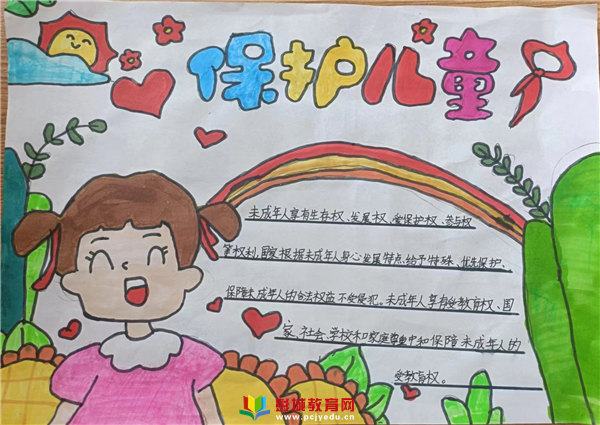 保护儿童
未成年人享有生存权、发展权、受保护权、参与权
等权利,国家根据未成年人身心发展特点给予特殊、优先保护、
保障未成年人的合法权益不受侵犯。未成年人享有受教育权、国
家、社会、学校和家庭尊重中和保障未成年人的
受教育权。
彭城教育网
www.pcjyedu.cn